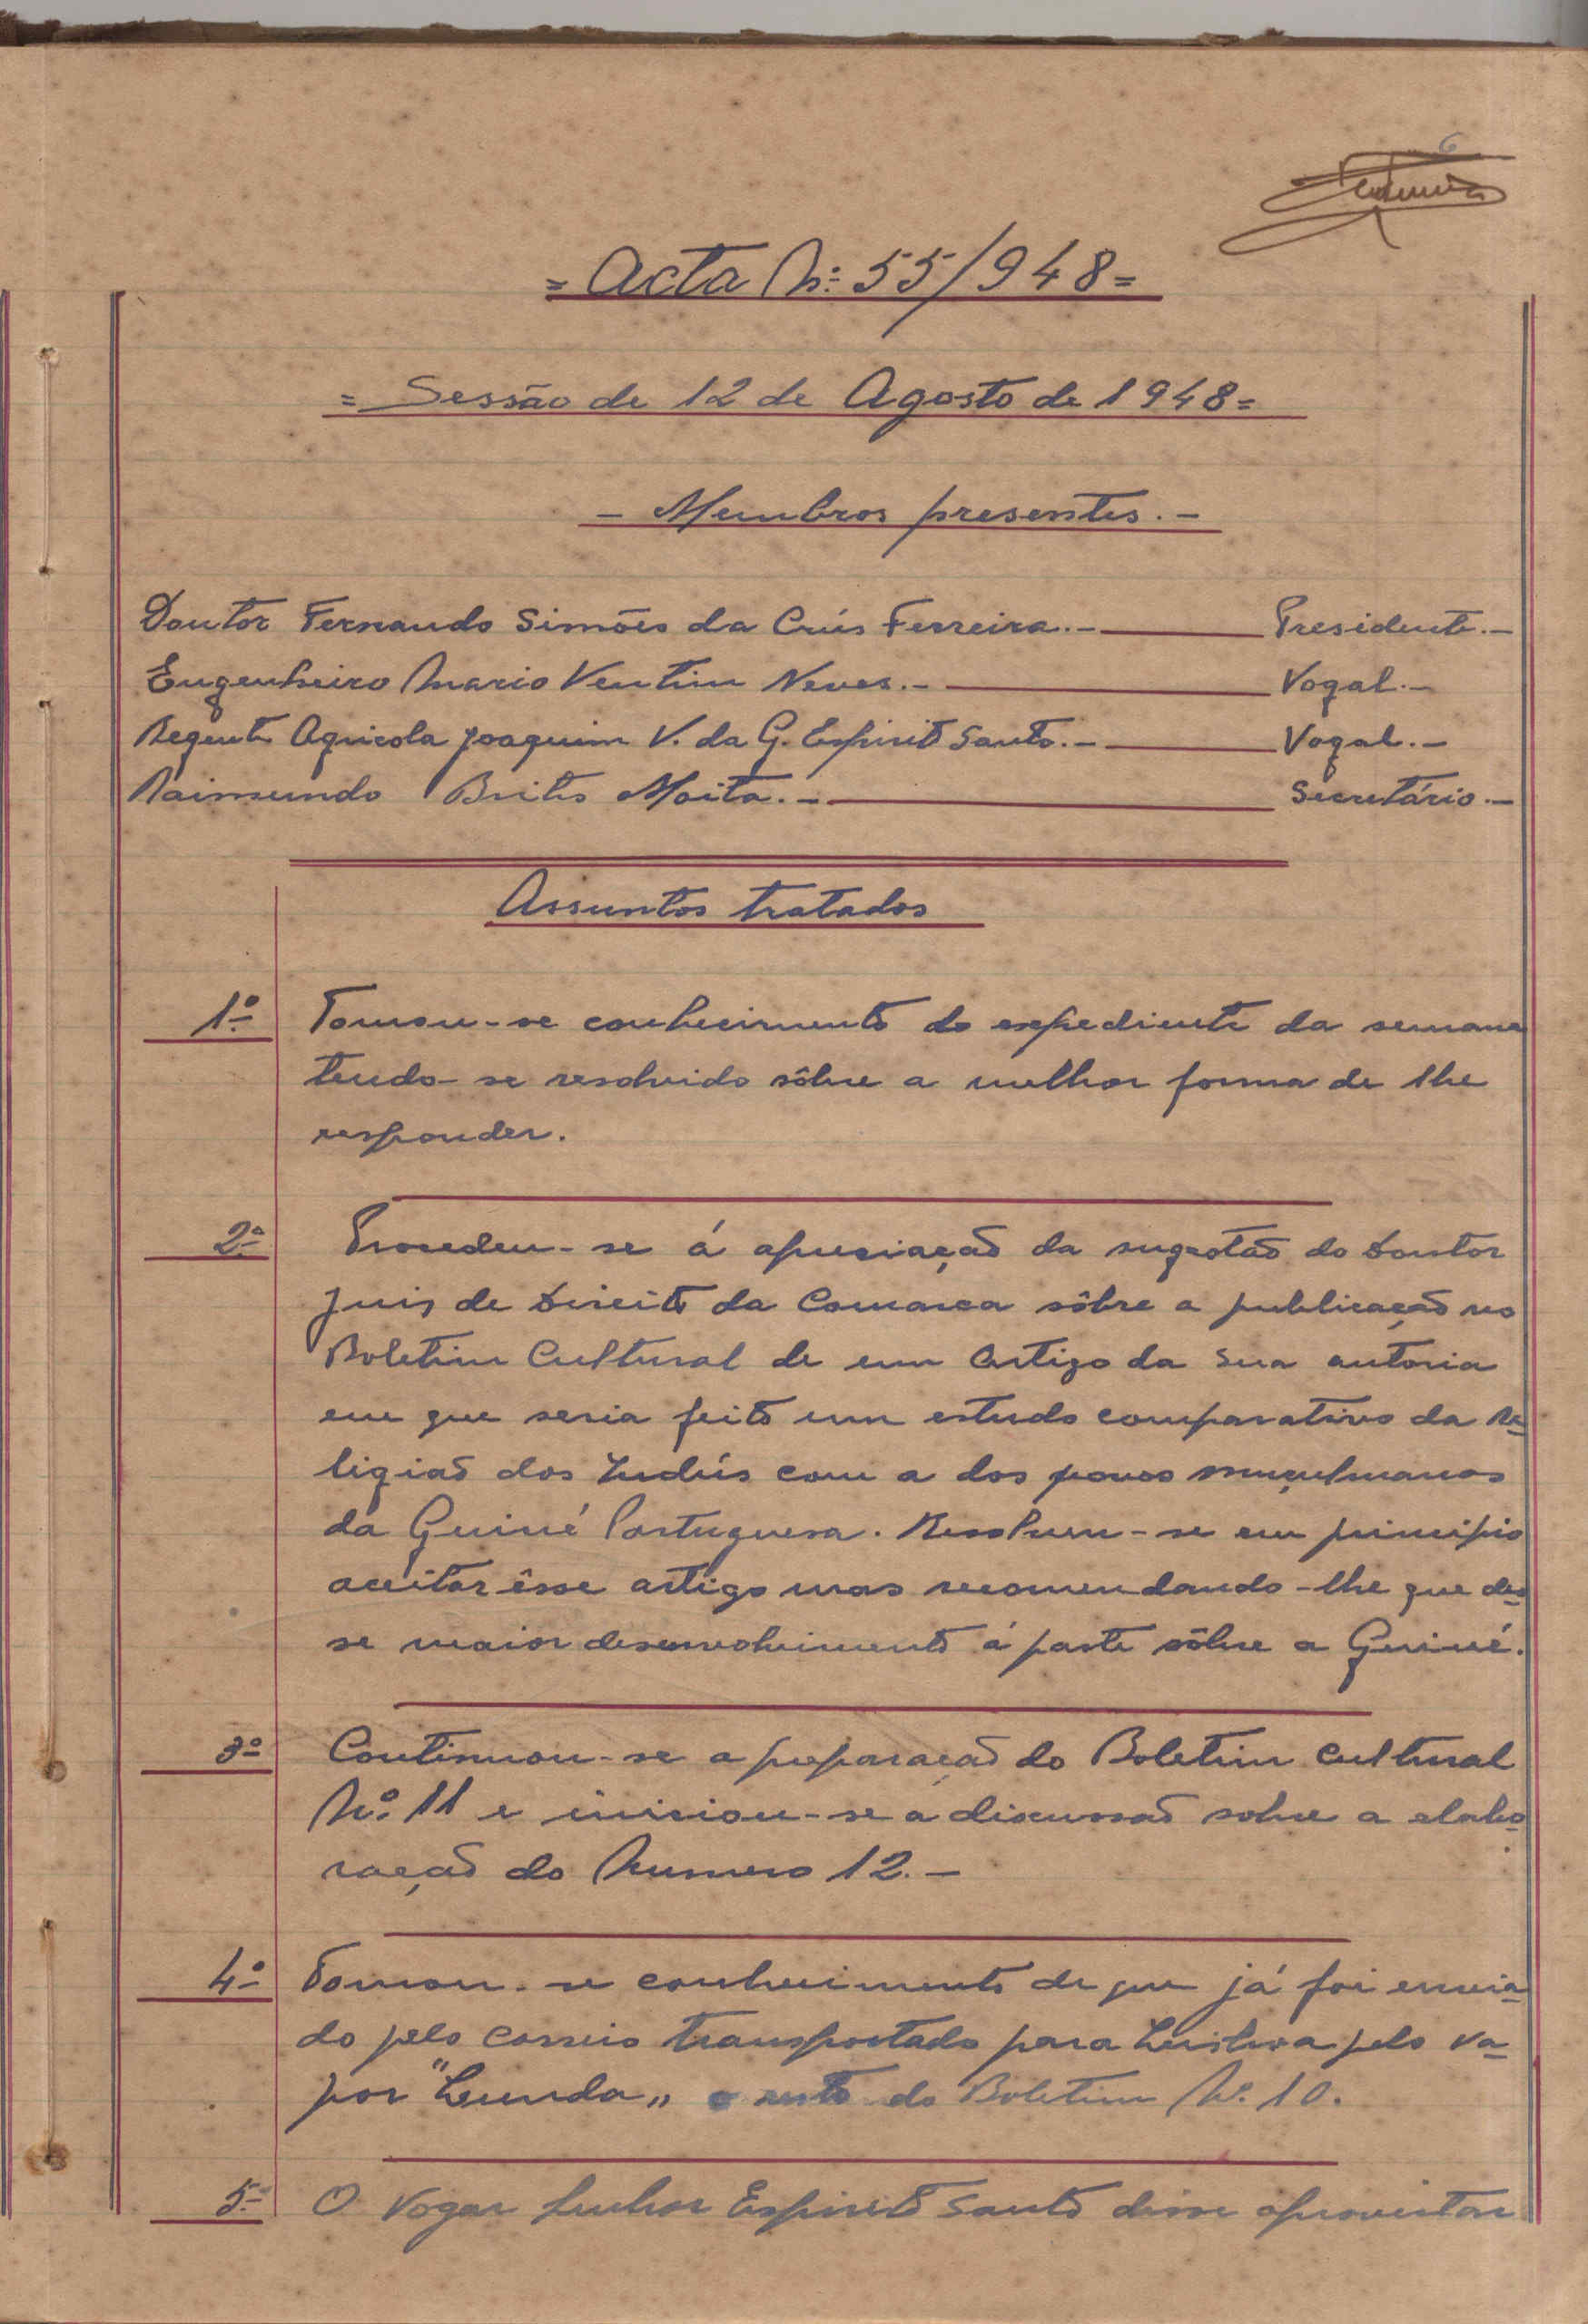 6
= Acta Nº: 55/948 =
= Sessão de 12 de Agosto de 1948 =
- Membros presentes. -
Doutor Fernando Simões da Crús Ferreira. - Presidente. -
Engenheiro Mario Ventim Neves. - Vogal. -
Regente Agricola Joaquim V. da G. Espirito Santo. - Vogal. -
Raimundo Brito Moita. - Secretário. -
Assuntos tratados
1º Tomou-se conhecimento do expediente da semana
tendo-se resolvido sôbre a melhor forma de lhe
responder.
2º Procedeu-se á apreciação da sugestão do Doutor
Juis de Direito da Comarca sôbre a publicação no
Boletim Cultural de um Artigo da sua autoria
em que seria feito um estudo comparativo da Re-
ligião dos Indús com a dos povos muçulmanos
da Guiné Portuguesa. Resolveu-se em principio
aceitar êsse artigo mas recomendando-lhe que des-
se maior desenvolvimento á parte sôbre a Guiné.
3º Continuou-se a preparação do Boletim Cultural
Nº: 11 e iniciou-se a discussão sobre a elabo-
ração do Numero 12. -
4º Tomou-se conhecimento de que já foi envia-
do pelo correio transportado para Lisboa pelo va-
por "Lunda" o resto do Boletim Nº. 10.
5º O Vogar Senhor Espirito Santo disse aproveitar